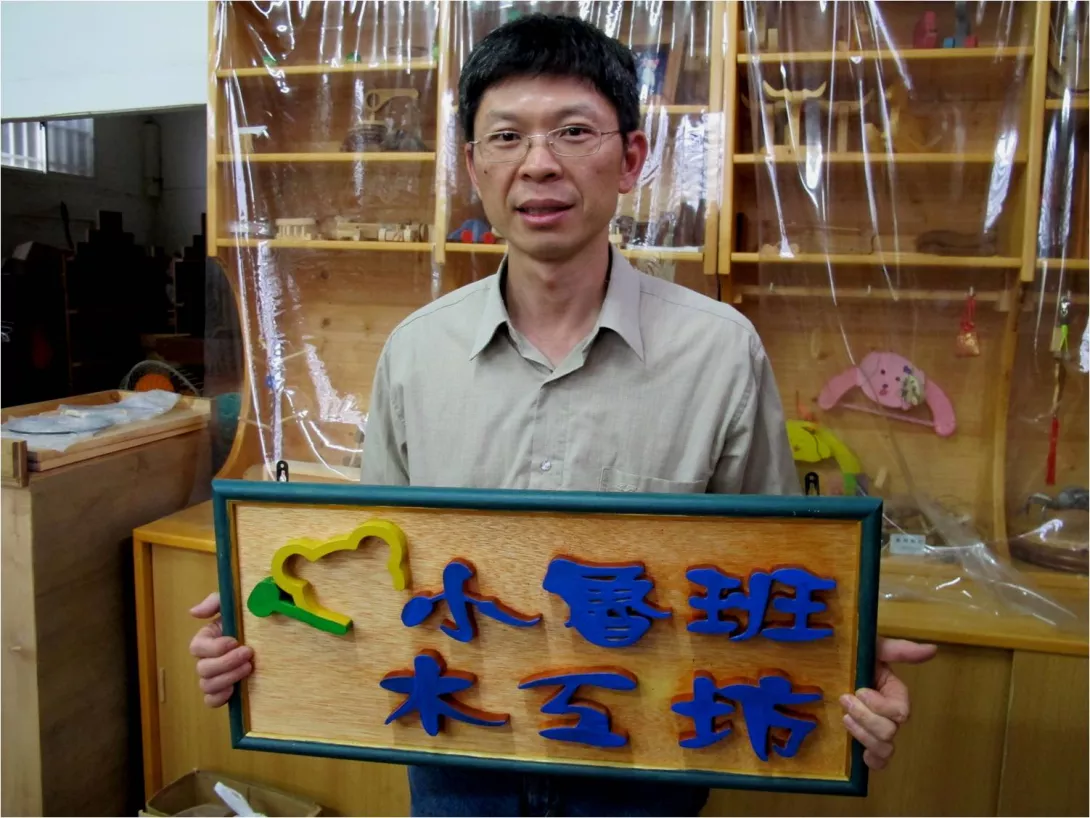 小魯班
木工坊